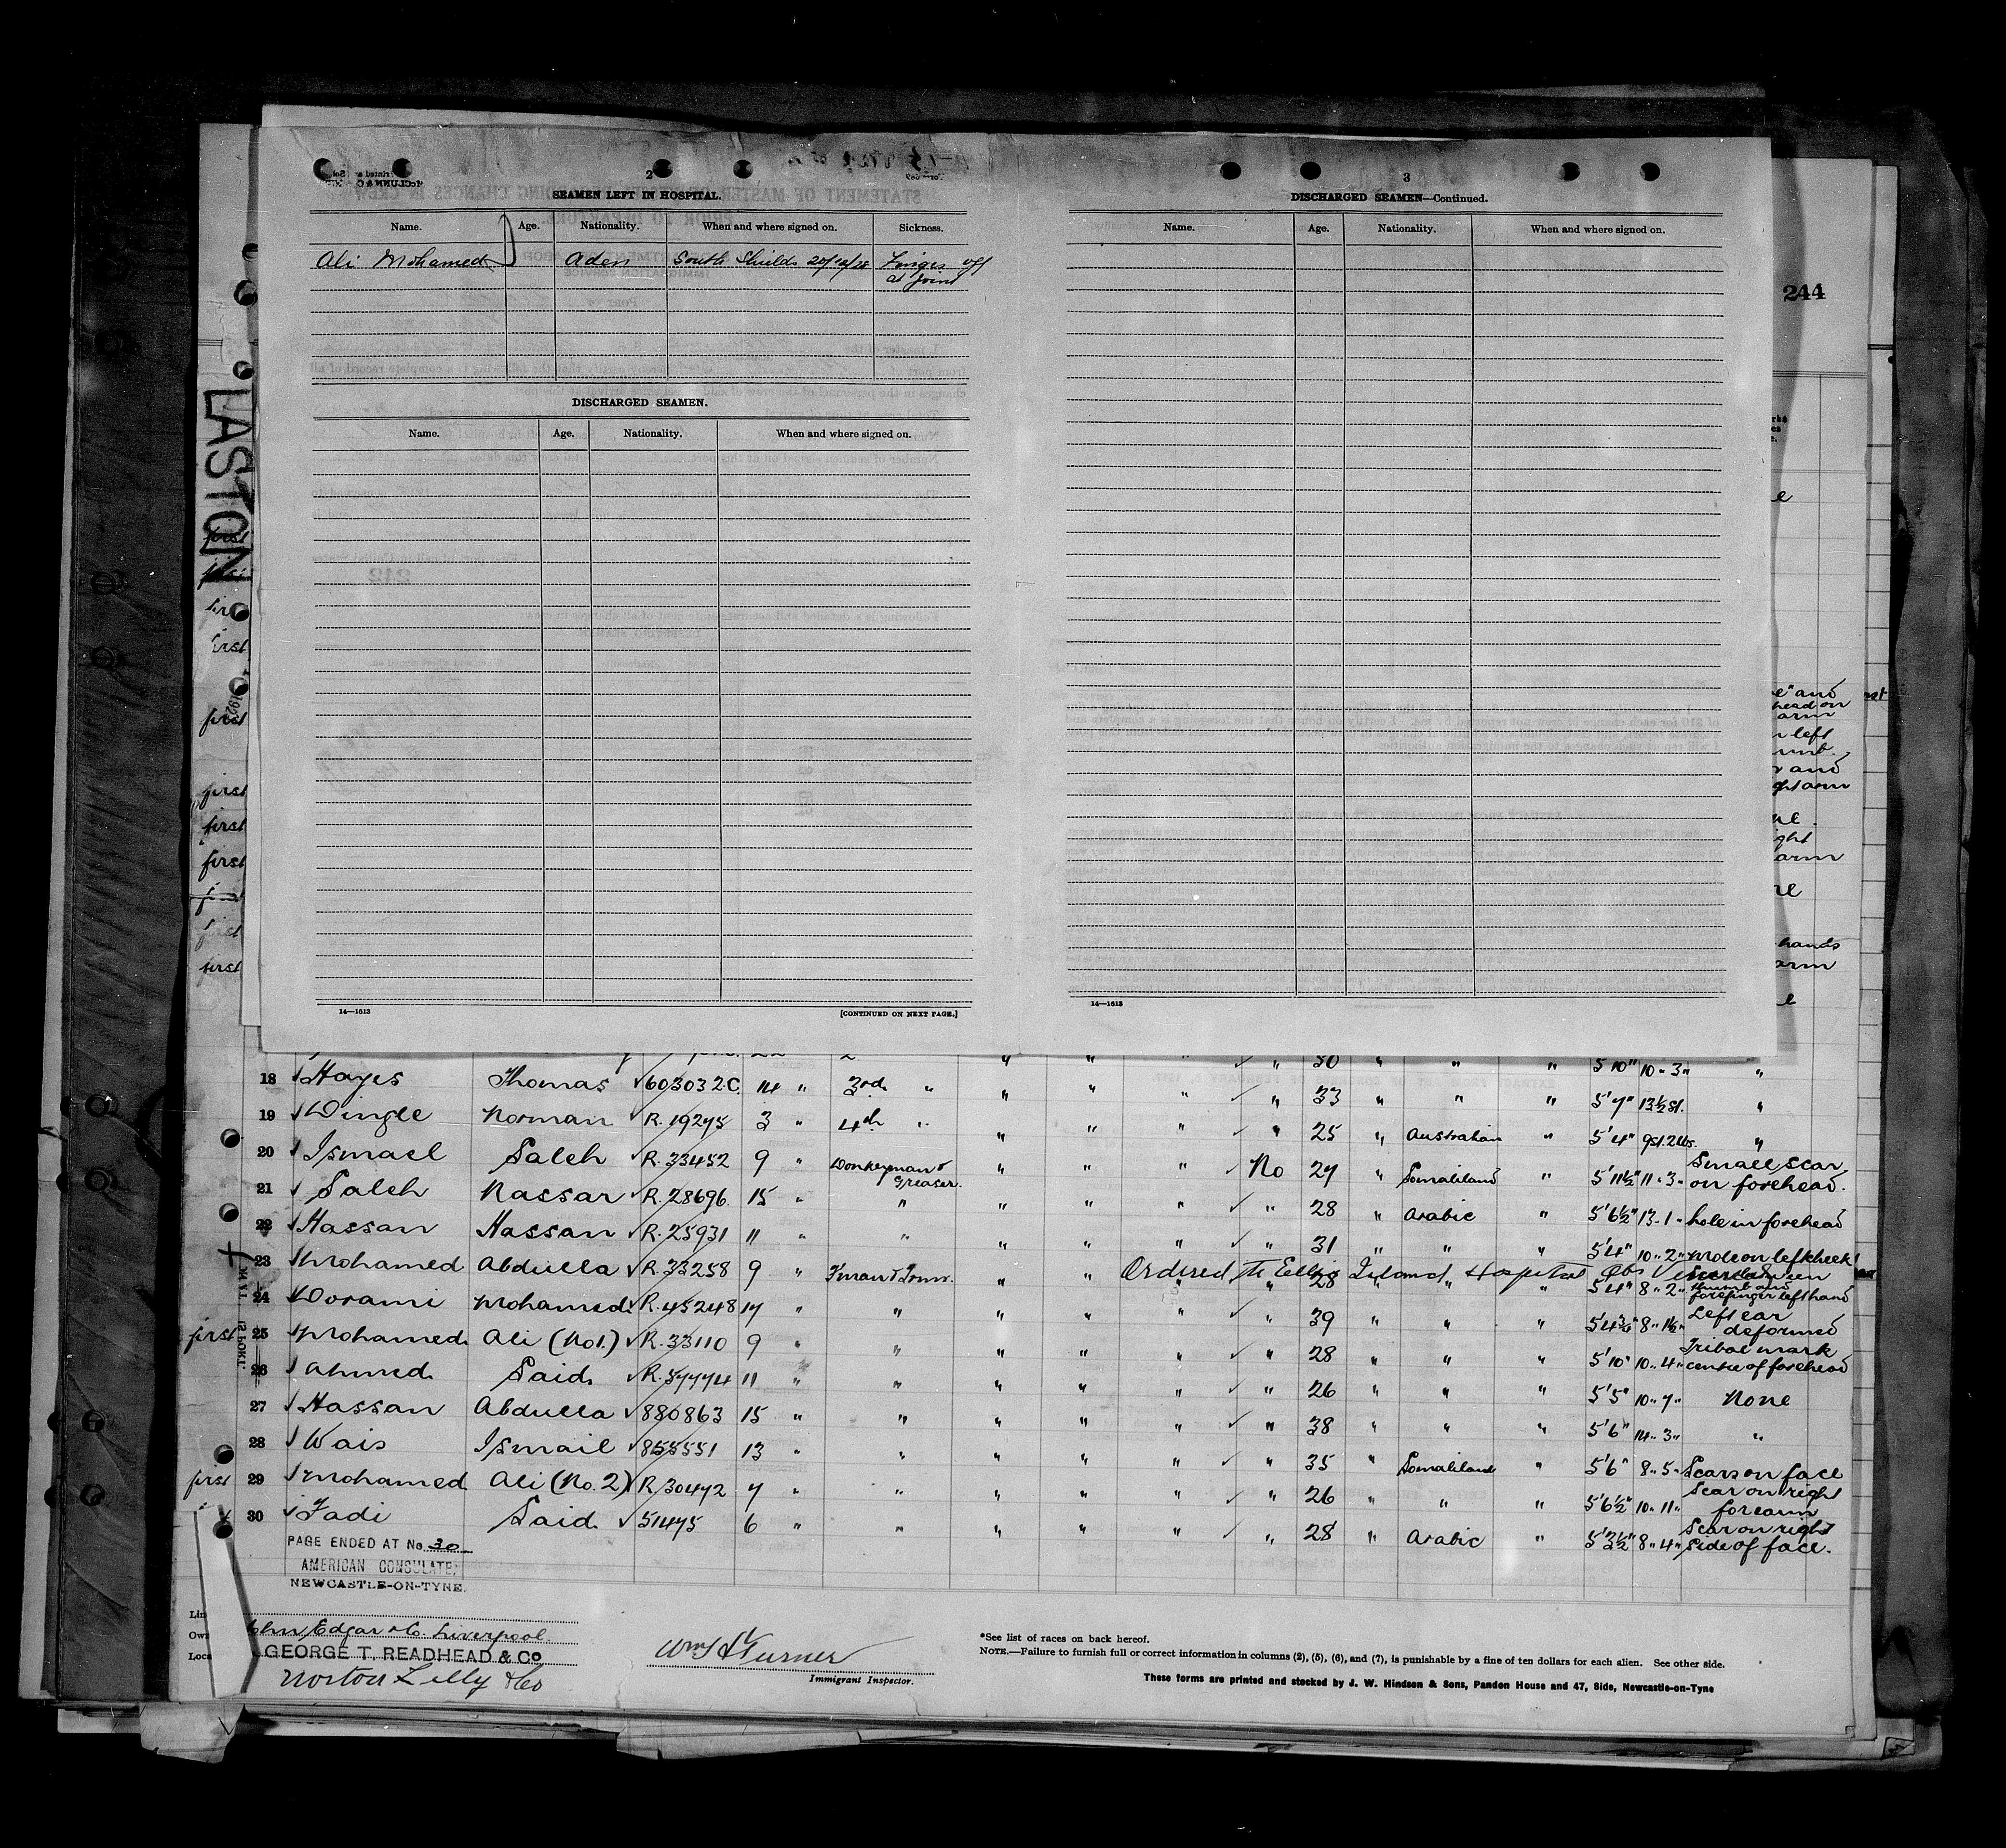 2
SEAMEN LEFT IN HOSPITAL.
Name. Age. Nationality. When and where signed on. Sickness.
Ali Mohamed Aden South Shields 20/12/28 Finger off
at joint
DISCHARGED SEAMEN.
Name. Age. Nationality. When and where signed on.
14—1613 [CONTINUED ON NEXT PAGE.]
3
DISCHARGED SEAMEN—Continued.
Name. Age. Nationality. When and where signed on.
14—1613
244
LASTON
first
first
first
first
first
first
first
e
head on
arm
left
and
arm
ght
arm
hands
arm
30 " " " 5'10" 10 " 3 " "
18 Hayes Thomas 603032C. 14 " 3rd " " " " " 33 " " " 5'7" 13½ st. "
19 Dingle Norman R. 19275 3 " 4th " " " " " 25 " Australian " 5'4" 9st. 2lbs. "
20 Ismael Saleh R. 33452 9 " Donkeyman & Greaser. " " " No 27 " Somaliland " 5'11½" 11 " 3 " Small scar on forehead.
21 Saleh Nassar R. 28696 15 " " " " " " 28 " Arabic " 5'6½" 13 " 1 " hole in forehead
22 Hassan Hassan R. 25931 11 " " " " " " 31 " " " 5'4" 10 " 2 " mole on left cheek
23 Mohamed Abdulla R. 33258 9 " F'man & Trmr. " " Ordered to Ellis Island Hospital 28 " 5'4" 8 " 2 " thumb and forefinger left hand
24 Dorami Mohamed R. 45248 14 " " " " " " 39 " " " 5'4¾" 8 " 1½ " Left ear deformed
first 25 Mohamed Ali (No1.) R. 33110 9 " " " " " " 28 " " " 5'10" 10 " 4 " Tribal mark centre of forehead
26 Ahmed Said R. 57774 11 " " " " " " 26 " " " 5'5" 10 " 7 " None
27 Hassan Abdulla 880863 15 " " " " " " 38 " " " 5'6" 14 " 3 " "
28 Wais Ismail 855551 13 " " " " " " 35 " Somaliland " 5'6" 8 " 5 " Scars on face
first 29 Mohamed Ali (No. 2) R 30472 7 " " " " " " 26 " " " 5'6½" 10 " 11 " Scar on right forearm
30 Fadi Said 51475 6 " " " " " " 28 " Arabic " 5'3½" 8 " 4 " Scar on right side of face.
PAGE ENDED AT No. 30
AMERICAN CONSULATE,
NEWCASTLE-ON-TYNE.
Lin
Own John Edgar & Co. Liverpool
Loca GEORGE T. READHEAD & Co
Norton Lilly & Co
Wm S Turner
Immigrant Inspector.
*See list of races on back hereof.
NOTE.—Failure to furnish full or correct information in columns (2), (5), (6), and (7), is punishable by a fine of ten dollars for each alien. See other side.
These forms are printed and stocked by J. W. Hindson & Sons, Pandon House and 47, Side, Newcastle-on-Tyne